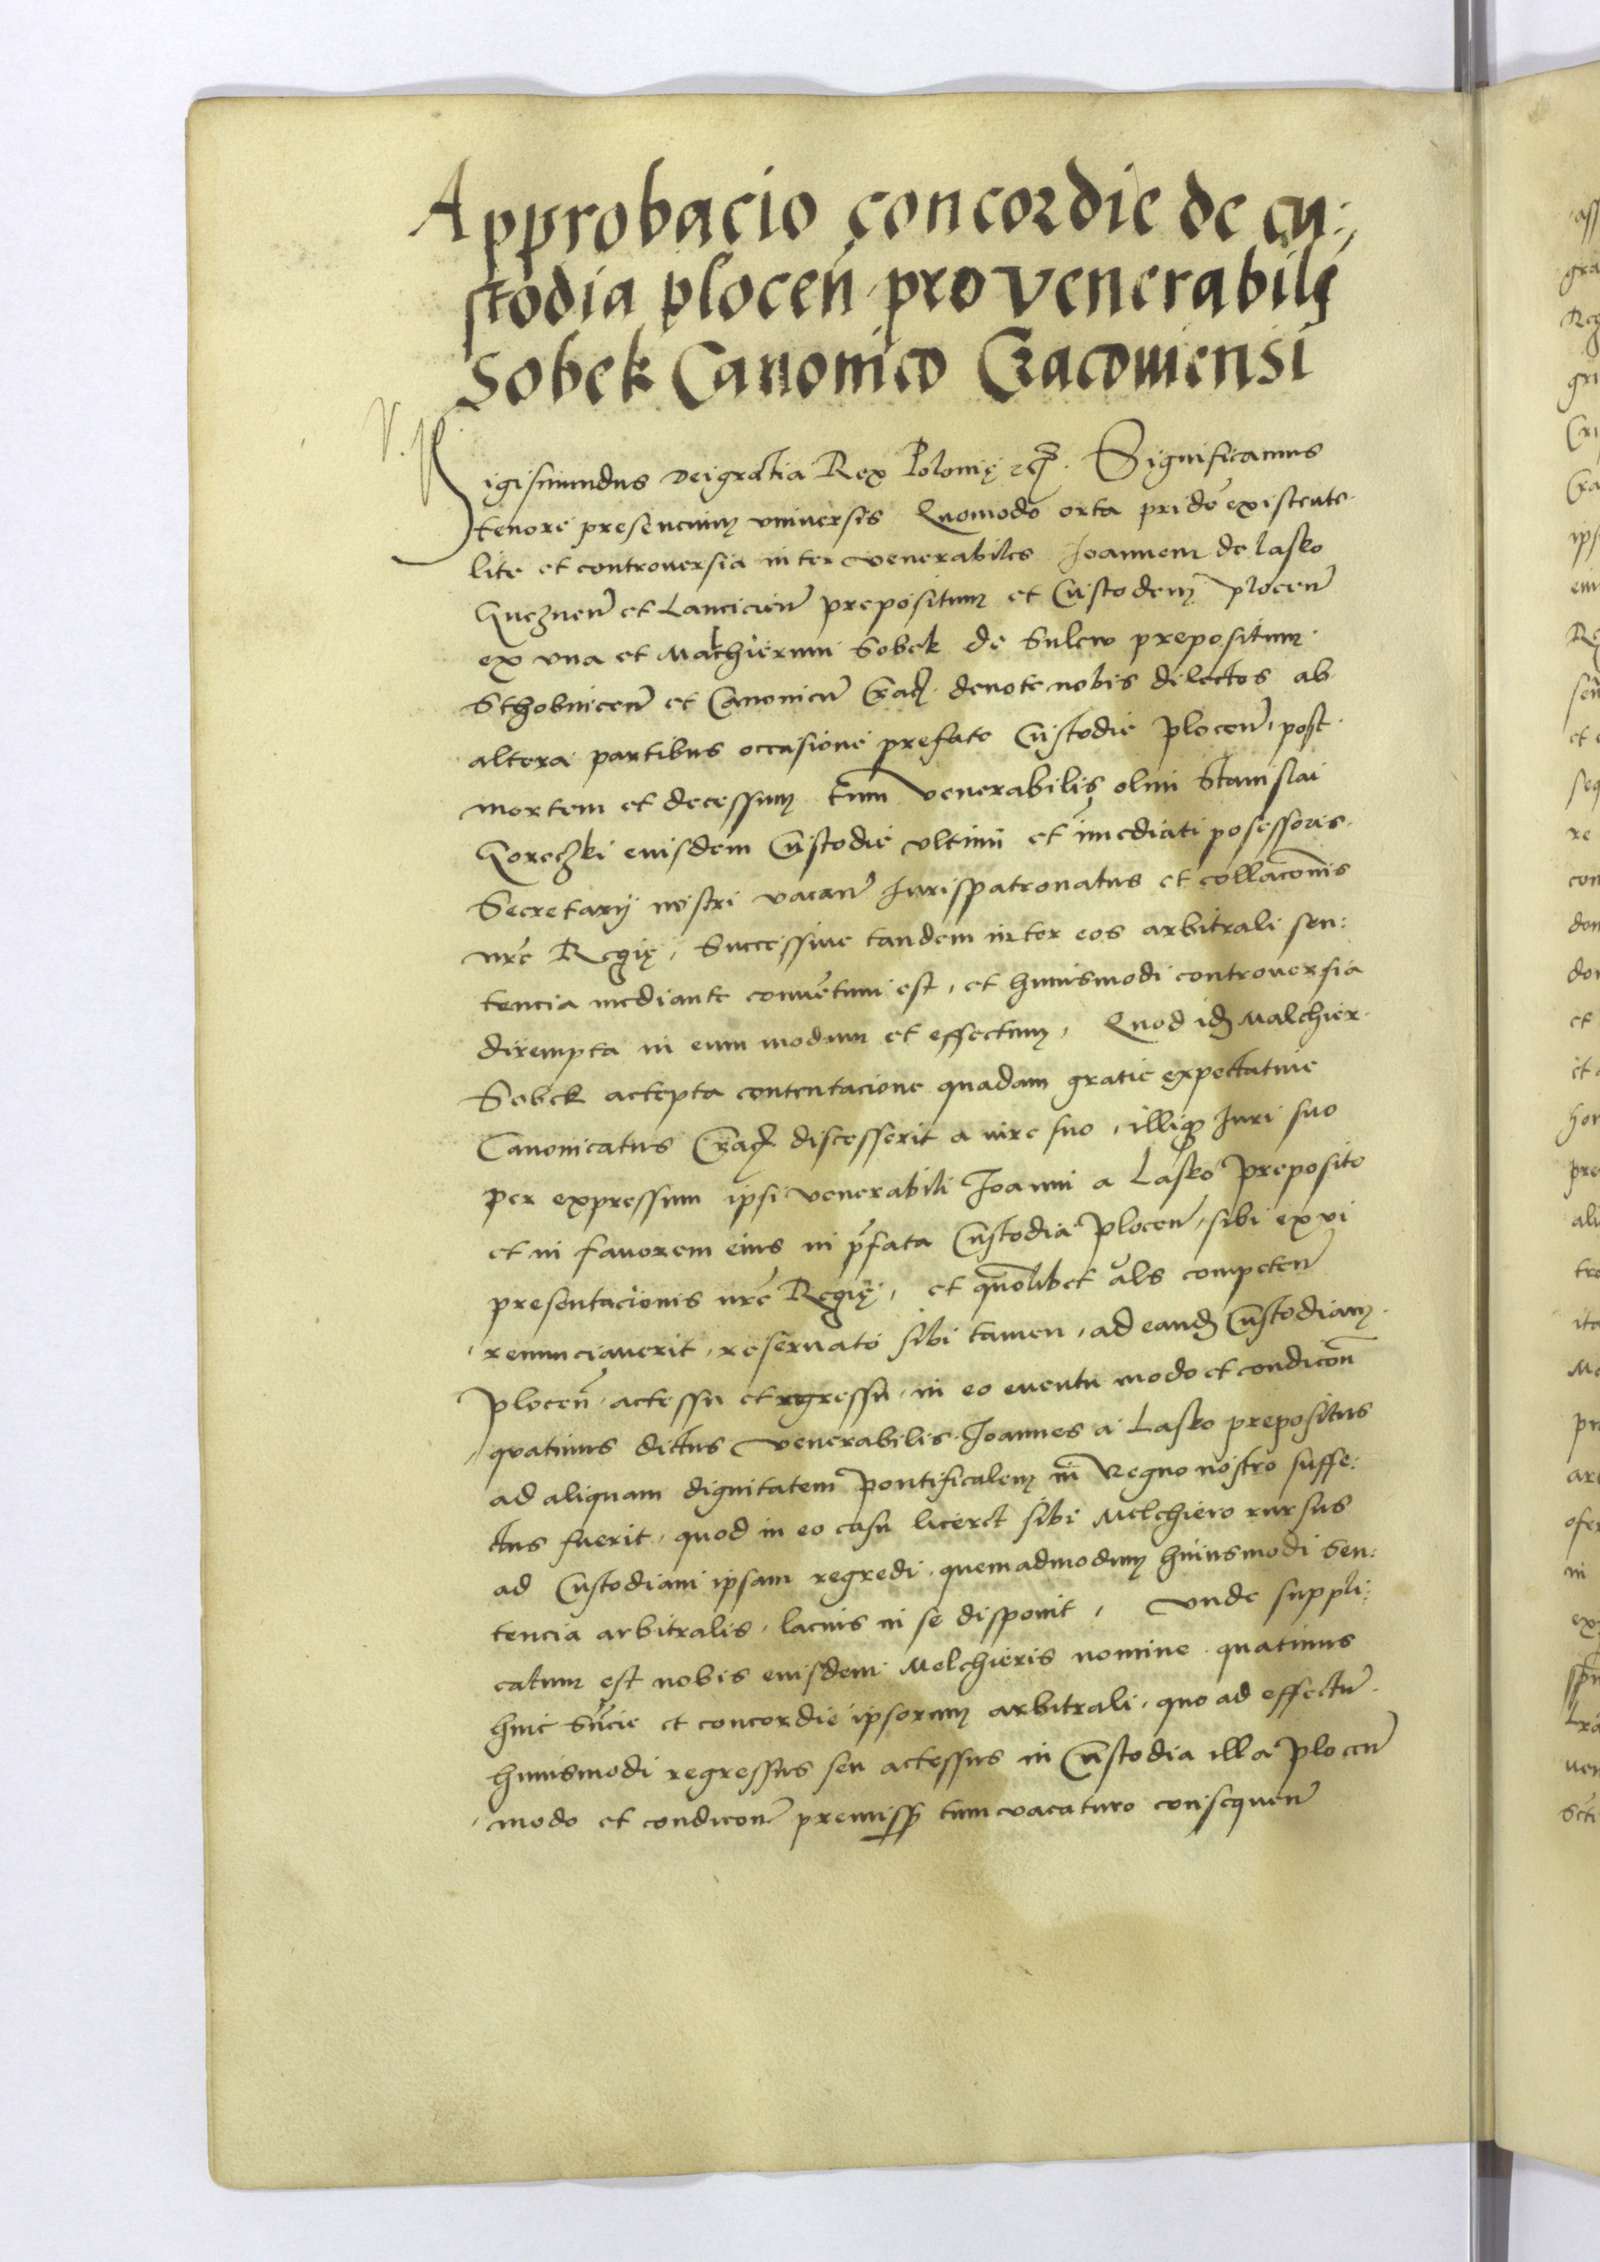 Approbacio concordie de cu:
stodia plocen̄ pro venerabili
Sobek Canonico Cracoviensi
V.
Sigismundus Dei gratia Rex Polonię etc. Significamus
tenore presencium universis Quomodo orta pridē existente
lite et controversia inter venerabiles Joannem de lasko
Gneznen̄ et Lancicien̄ prepositum et Custodem plocen̄
ex una et Malchierum Sobek de Sulew prepositum
Sthobnicen̄ et Canonicū Crac̄ devote nobis dilectos ab
altera partibus occasione prefate Custodie plocen̄, post
mortem et decessum tum venerabilis olim Stanislai
Goreczki eiusdem Custodie ultimi et īmediati posessoris
Secretarij nostri vacan̄ Jurispatronatus et collacōnis
nrē Regię, Successive tandem inter eos arbitrali sen:
tencia mediante conuētum est, et huiusmodi controversia
dirempta in eum modum et effectum, Quod idē Malchier
Sobek accepta contentacione quadam gratie expectative
Canonicatus Crac̄ discesserit a iure suo, illiq̄ Juri suo
per expressum ipsi venerabili Joanni a Lasko Preposito
et in favorem eius in p̄fata Custodia Plocen̄, sibi ex vi
presentacionis nrē Regię, et quōlibet al̄s competen̄
renunciaverit, reservato sibi tamen, ad eand̄ Custodiam
Plocen̄ accessu et regressu, in eo eventu modo et condicōn
quatinus dictus venerabilis Joannes a Lasko prepositus
ad aliquam dignitatem Pontificalem in Regno nostro suffe:
ctus fuerit, quod in eo casu liceret sibi Melchiero rursus
ad Custodiam ipsam regredi, quemadmodum huiusmodi Sen:
tencia arbitralis, lacius in se disponit, Unde suppli:
catum est nobis eiusdem Melchieris nomine quatinus
huic Sn̄cie et concordie ipsorum arbitrali, quo ad effectū
huiusmodi regressus seu accessus in Custodia illa Plocen̄
modo et condicōn premiss̄ tum vacaturo consequen̄